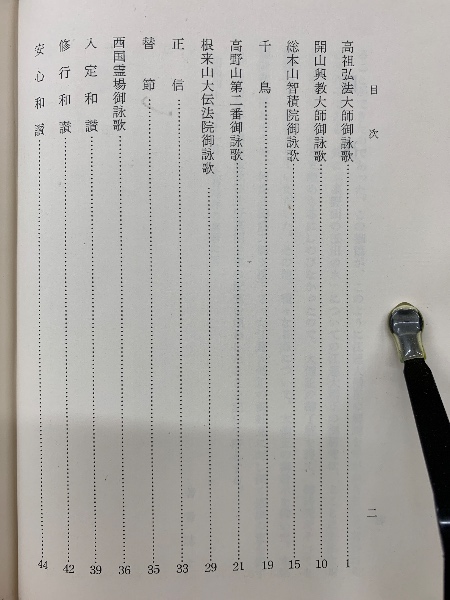 目次
高祖弘法大師御詠歌 1
開山興教大師御詠歌 10
総本山智積院御詠歌 15
千鳥 19
高野山第二番御詠歌 21
根来山大伝法院御詠歌 29
正信 33
替節 35
西国霊場御詠歌 36
入定和讃 39
修行和讃 42
安心和讃 44
二